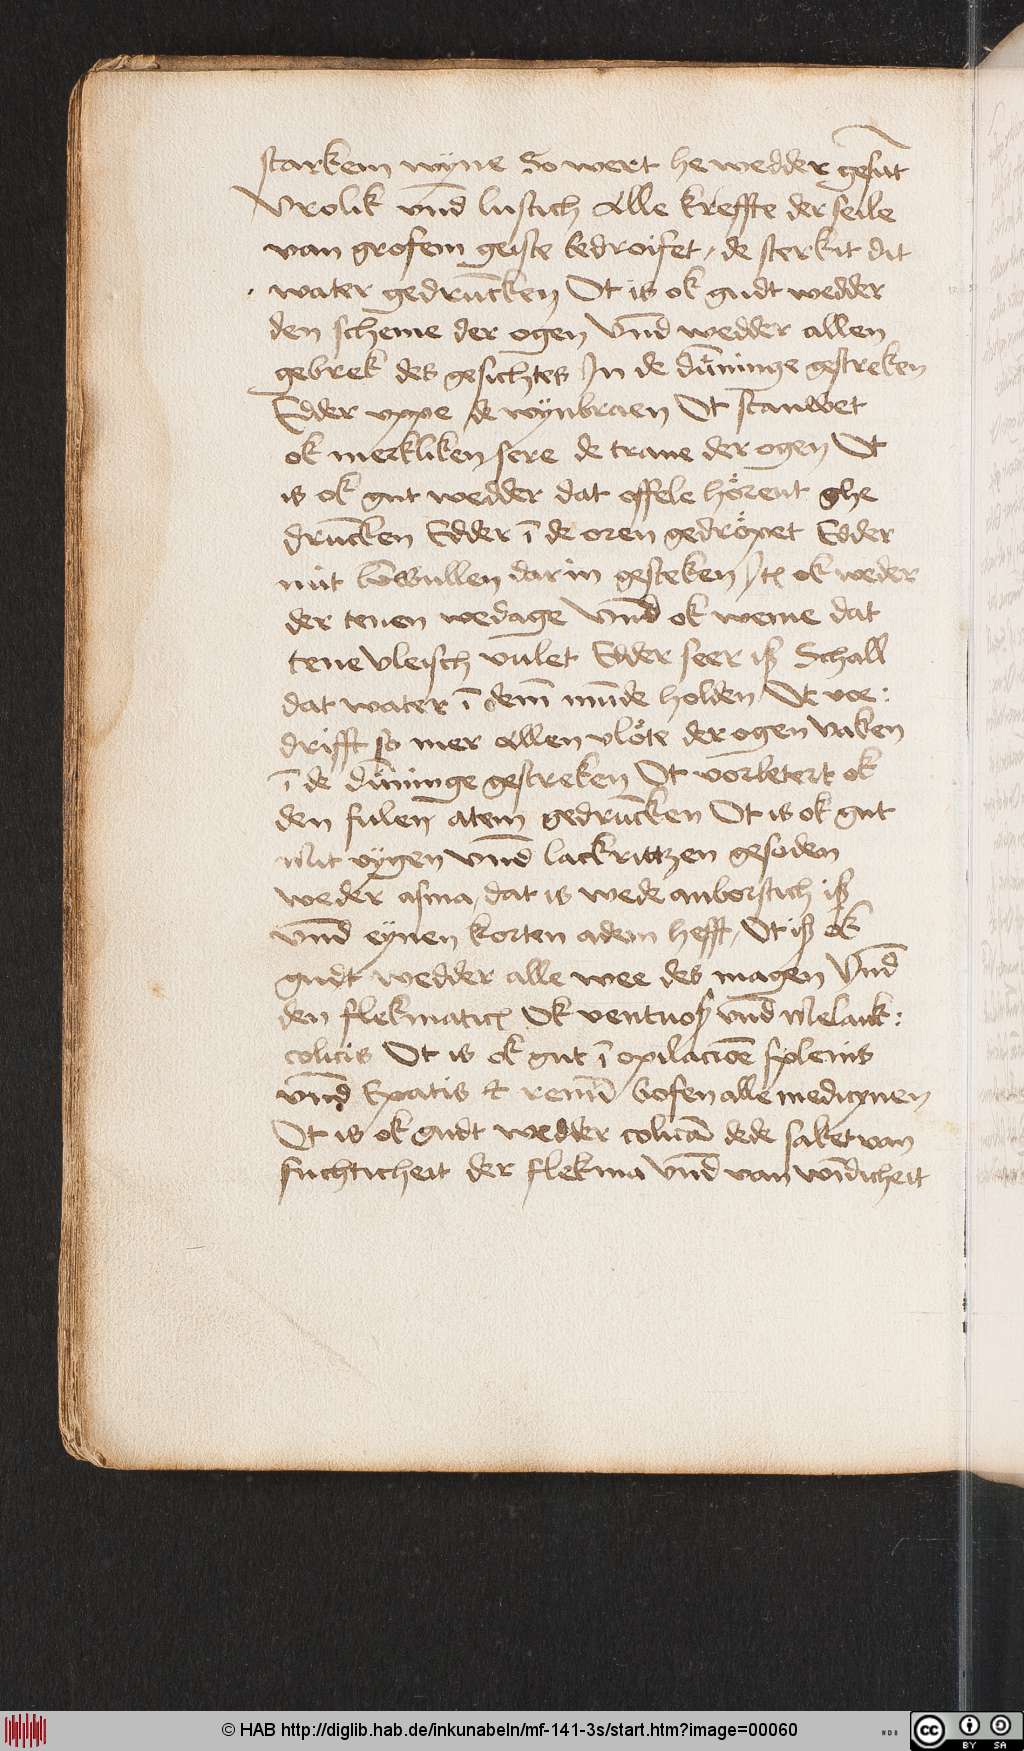 starkem wyne So wert he wedder gesūt
Vrolik vnd̄ lustich Alle kreffte der seile
van grofem geiste bedroifet / de sterkit dit
water gedrun̄cken Ot is ok gudt wedder
den scheme der ogen Vnd̄ wedder allen
gebrek des gesichtes In de dūninge gestreken
Edder vppe de wynbraen Ot stauwet
ok merkliken sere de trane der ogen Ot
is ok gut wedder dat offele hörent ghe
drun̄cken Edder ī de oren gedröpet Edder
mit bōwullen darin gesteken It ok weder
der tenen wedage Vnd̄ ok weme dat
tene vleisch vulet Edder seer iß Schall
dat water ī dem̄ munde holden Ot vor:
drifft so mer Allen vlöte der ogen Vaken
ī de dūninge gestreken Ot vorbetert ok
den fulen atem gedrun̄cken Ot is ok gut
Mit vygen vnd̄ lackrittzen gesoden
weder asma / dat is wede anborstich iß
vnd̄ eynen korten adem hefft / Ot iß ok
gudt wedder alle wee des magen Vnd̄
den flekmaticis Ok ventuoß vnd̄ Melank:
colicis Ot is ok gut ī opilacione splenis
vnd̄ Epatis et renū bofen alle medicynen
Ot is ok gudt wedder colicā dede saket van
fuchticheit der flekma Vnd̄ van wīdicheit
© HAB http://diglib.hab.de/inkunabeln/mf-141-3s/start.htm?image=00060
WDB
cc BY SA